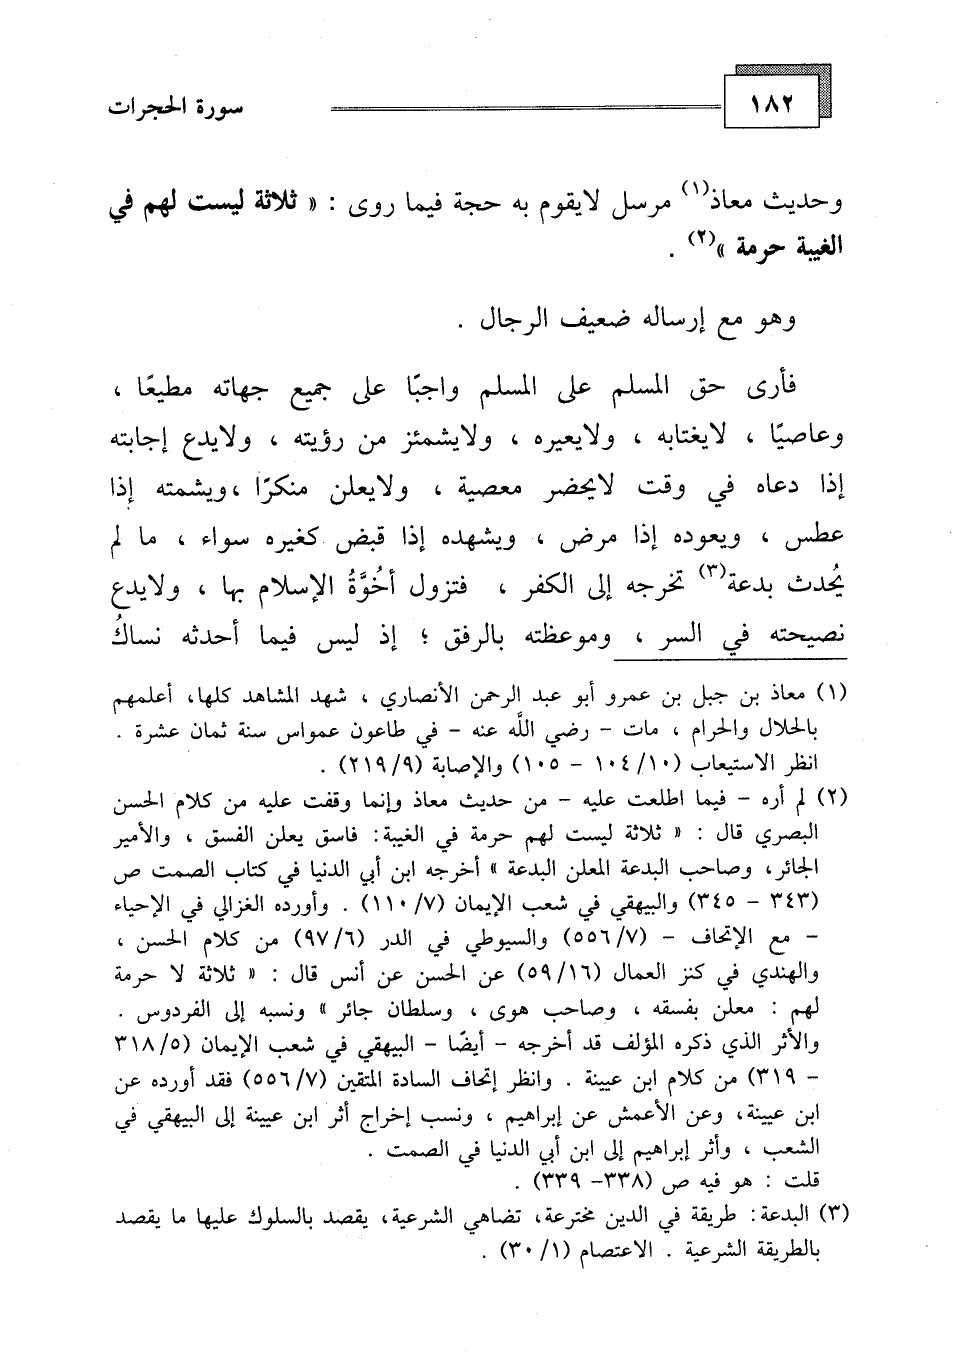 ١٨٢ سورة الحجرات
وحديث معاذ(١) مرسل لايقوم به حجة فيما روى : « ثلاثة ليست لهم في
الغيبة حرمة »(٢) .
وهو مع إرساله ضعيف الرجال .
فأرى حق المسلم على المسلم واجبًا على جميع جهاته مطيعًا ،
وعاصيًا ، لايغتابه ، ولايعيره ، ولايشمئز من رؤيته ، ولايدع إجابته
إذا دعاه في وقت لايحضر معصية ، ولايعلن منكرًا ،ويشمته إذا
عطس ، ويعوده إذا مرض ، ويشهده إذا قبض كغيره سواء ، ما لم
يُحدث بدعة(٣) تخرجه إلى الكفر ، فتزول أُخُوَّةُ الإسلام بها ، ولايدع
نصيحته في السر ، وموعظته بالرفق ؛ إذ ليس فيما أحدثه نساكُ
(١) معاذ بن جبل بن عمرو أبو عبد الرحمن الأنصاري ، شهد المشاهد كلها، أعلمهم
بالحلال والحرام ، مات - رضي اللَّه عنه - في طاعون عمواس سنة ثمان عشرة .
انظر الاستيعاب (١٠/ ١٠٤ - ١٠٥) والإصابة (٩/ ٢١٩) .
(٢) لم أره - فيما اطلعت عليه - من حديث معاذ وإنما وقفت عليه من كلام الحسن
البصري قال : « ثلاثة ليست لهم حرمة في الغيبة: فاسق يعلن الفسق ، والأمير
الجائر، وصاحب البدعة المعلن البدعة » أخرجه ابن أبي الدنيا في كتاب الصمت ص
(٣٤٣ - ٣٤٥) والبيهقي في شعب الإيمان (٧/ ١١٠) . وأورده الغزالي في الإحياء
- مع الإتحاف - (٧/ ٥٥٦) والسيوطي في الدر (٦/ ٩٧) من كلام الحسن ،
والهندي في كنز العمال (١٦/ ٥٩) عن الحسن عن أنس قال : « ثلاثة لا حرمة
لهم : معلن بفسقه ، وصاحب هوى ، وسلطان جائر » ونسبه إلى الفردوس .
والأثر الذي ذكره المؤلف قد أخرجه - أيضًا - البيهقي في شعب الإيمان (٥/ ٣١٨
- ٣١٩) من كلام ابن عيينة . وانظر إتحاف السادة المتقين (٧/ ٥٥٦) فقد أورده عن
ابن عيينة، وعن الأعمش عن إبراهيم ، ونسب إخراج أثر ابن عيينة إلى البيهقي في
الشعب ، وأثر إبراهيم إلى ابن أبي الدنيا في الصمت .
قلت : هو فيه ص (٣٣٨- ٣٣٩) .
(٣) البدعة: طريقة في الدين مخترعة، تضاهي الشرعية، يقصد بالسلوك عليها ما يقصد
بالطريقة الشرعية . الاعتصام (١/ ٣٠) .